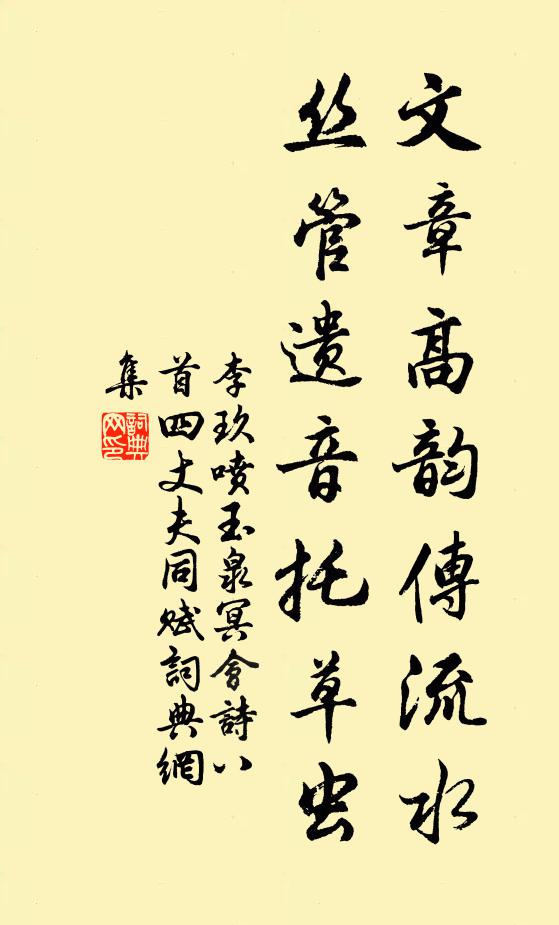 文章高韵傳流水
丝管遗音托草虫
李玖喷玉泉冥會詩八
首四丈夫同赋詞典網
集
詞典
网印